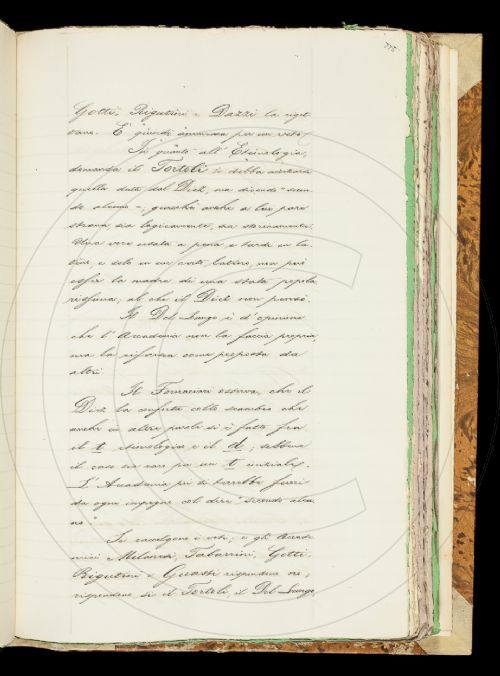 Gotti, Rigutini e Dazzi la riget
tano. È quindi ammessa per un voto.
In quanto all' Etimologia,
domanda il Tortoli se debba accettarsi
quella data dal Diez, ma dicendo "secon-
do alcuni"; giacchè anche a lui pare
strana, sia logicamente, sia storicamente.
Una voce usata a pena, e tardi in la-
tino, e solo in un certo latino, non può
esser la madre di una usata popola
rissima; al che il Diez non pensò.
Il Del Lungo è d'opinione
che l'Accademia non la faccia propria,
ma la riferisca come proposta da
altri.
Il Fornaciari osserva, che il
Diez la conforta collo scambio che
anche in altre parole si è fatto fra
il t etimologico e il d; sebbene
il caso sia raro per un t iniziale.
L'Accademia poi si trarrebbe fuori
da ogni impegno col dire "secondo alcu
ni".
Si raccolgono i voti; e gli Accade
mici Milanesi, Tabarrini, Gotti,
Rigutini e Guasti rispondono no;
rispondono sì il Tortoli, il Del Lungo